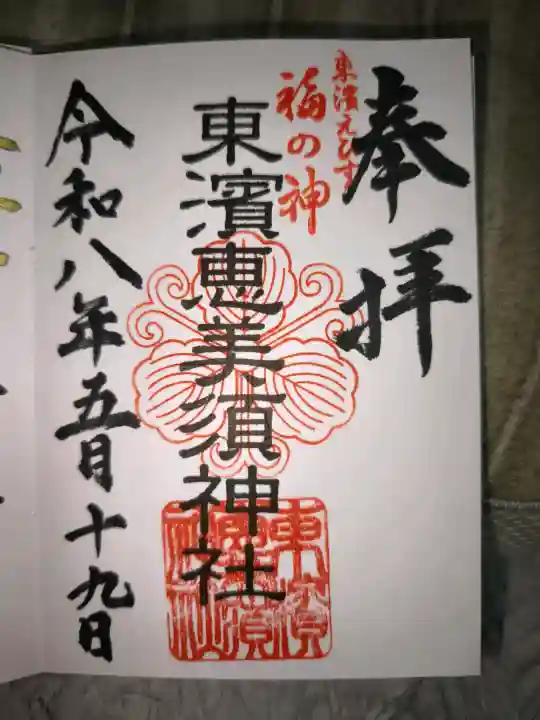 奉拝
東濱えびす
福の神
東濱恵美須神社
令和八年五月十九日